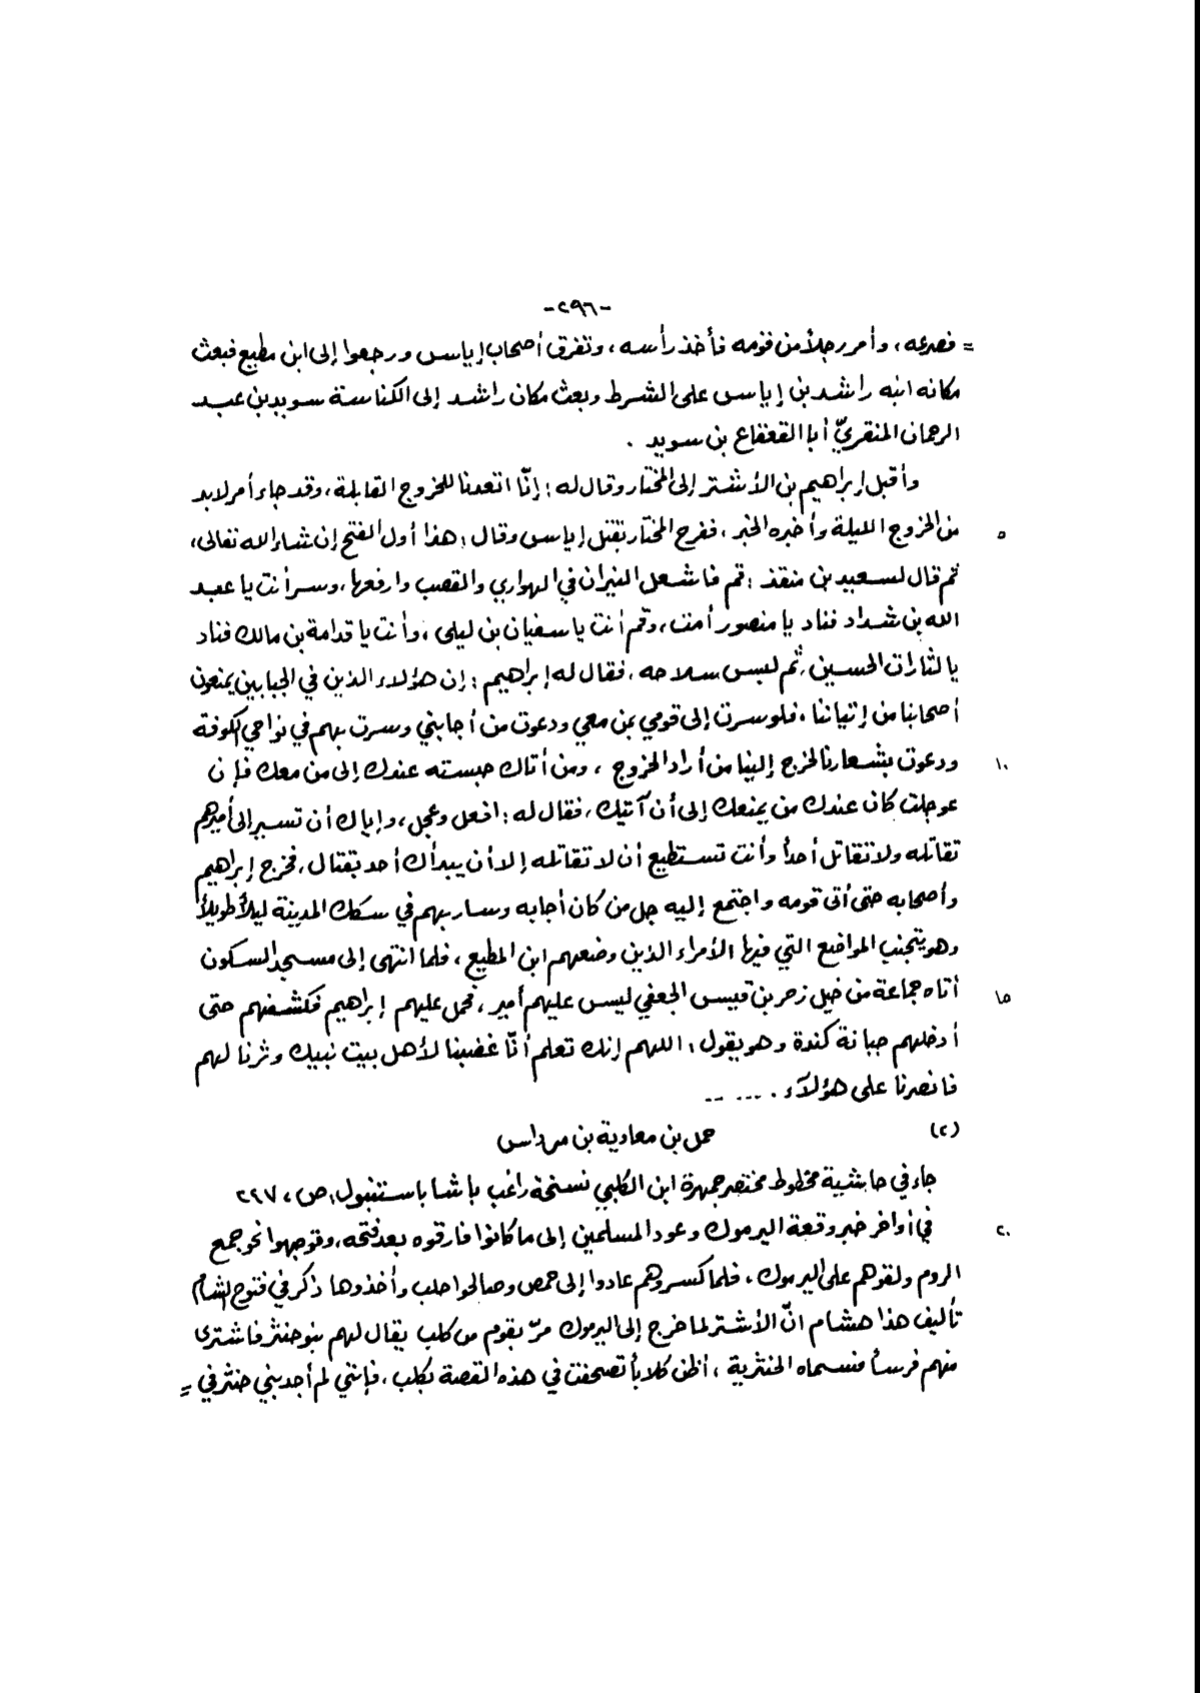 -٢٩٦-
= فصرعه، وأمر رجلاً من قومه فأخذ رأسه، وتفرق أصحاب إياس ورجعوا إلى ابن مطيع فبعث
مكانه ابنه راشد بن إياس على الشرط وبعث مكان راشد إلى الكناسة سويد بن عبد
الرحمان المنقريّ أبا القعقاع بن سويد .
وأقبل إبراهيم بن الأشتر إلى المختار وقال له: إنّا اتعدنا للخروج القابلة، وقد جاء أمر لا بد
من الخروج الليلة وأخبره الخبر، ففرح المختار بقتل إياس وقال: هذا أول الفتح إن شاء الله تعالى، ٥
ثم قال لسعيد بن منقذ: قم فاشعل النيران في الهواري والقصب وارفعها، وسر أنت يا عبد
الله بن شداد فناد يا منصور أمت، وقم أنت يا سفيان بن ليلى، وأنت يا قدامة بن مالك فناد
يا لثارات الحسين، ثم لبس سلاحه، فقال له إبراهيم: إن هؤلاء الذين في الجبابين يمنعون
أصحابنا من إتياننا، فلو سرت إلى قومي بمن معي ودعوت من أجابني وسرت بهم في نواحي الكوفة
ودعوت بشعارنا لخرج إلينا من أراد الخروج، ومن أتاك حبسته عندك إلى من معك فإن ١٠
عوجلت كان عندك من يمنعك إلى أن آتيك، فقال له: افعل وعجل، وإياك أن تسير إلى أميرهم
تقاتله ولا تقاتل أحداً وأنت تستطيع أن لا تقاتله إلا أن يبدأك أحد بقتال، فخرج إبراهيم
وأصحابه حتى أتى قومه واجتمع إليه جل من كان أجابه وسار بهم في سكك المدينة ليلاً طويلاً
وهو يتجنب المواضع التي فيها الأمراء الذين وضعهم ابن المطيع، فلما انتهى إلى مسجد السكون
أتاه جماعة من خيل زحر بن قيس الجعفي ليس عليهم أمير، فحمل عليهم إبراهيم فكشفهم حتى ١٥
أدخلهم جبانة كندة وهو يقول: اللهم إنك تعلم أنّا غضبنا لأهل بيت نبيك وثرنا لهم
فانصرنا على هؤلآء . ... ..
(٢) حمل بن معاوية بن مرداس
جاء في حاشية مخطوط مختصر جمهرة ابن الكلبي نسخة راغب باشا باستنبول، ص، ٢٩٧
في أواخر خبر وقعة اليرموك وعود المسلمين إلى ما كانوا فارقوه بعد فتحه، وتوجهوا نحو جمع ٢٠
الروم ولقوهم على اليرموك، فلما كسروهم عادوا إلى حمص وصالحوا حلب وأخذوها ذكر في فتوح الشام
تأليف هذا هشام انّ الأشتر لما خرج إلى اليرموك مرّ بقوم من كلب يقال لهم بنو حنثر فاشترى
منهم فرساً فسماه الحنثرية، أظن كلاباً تصحفت في هذه القصة بكلب، فإنني لم أجد بني حنثر في =